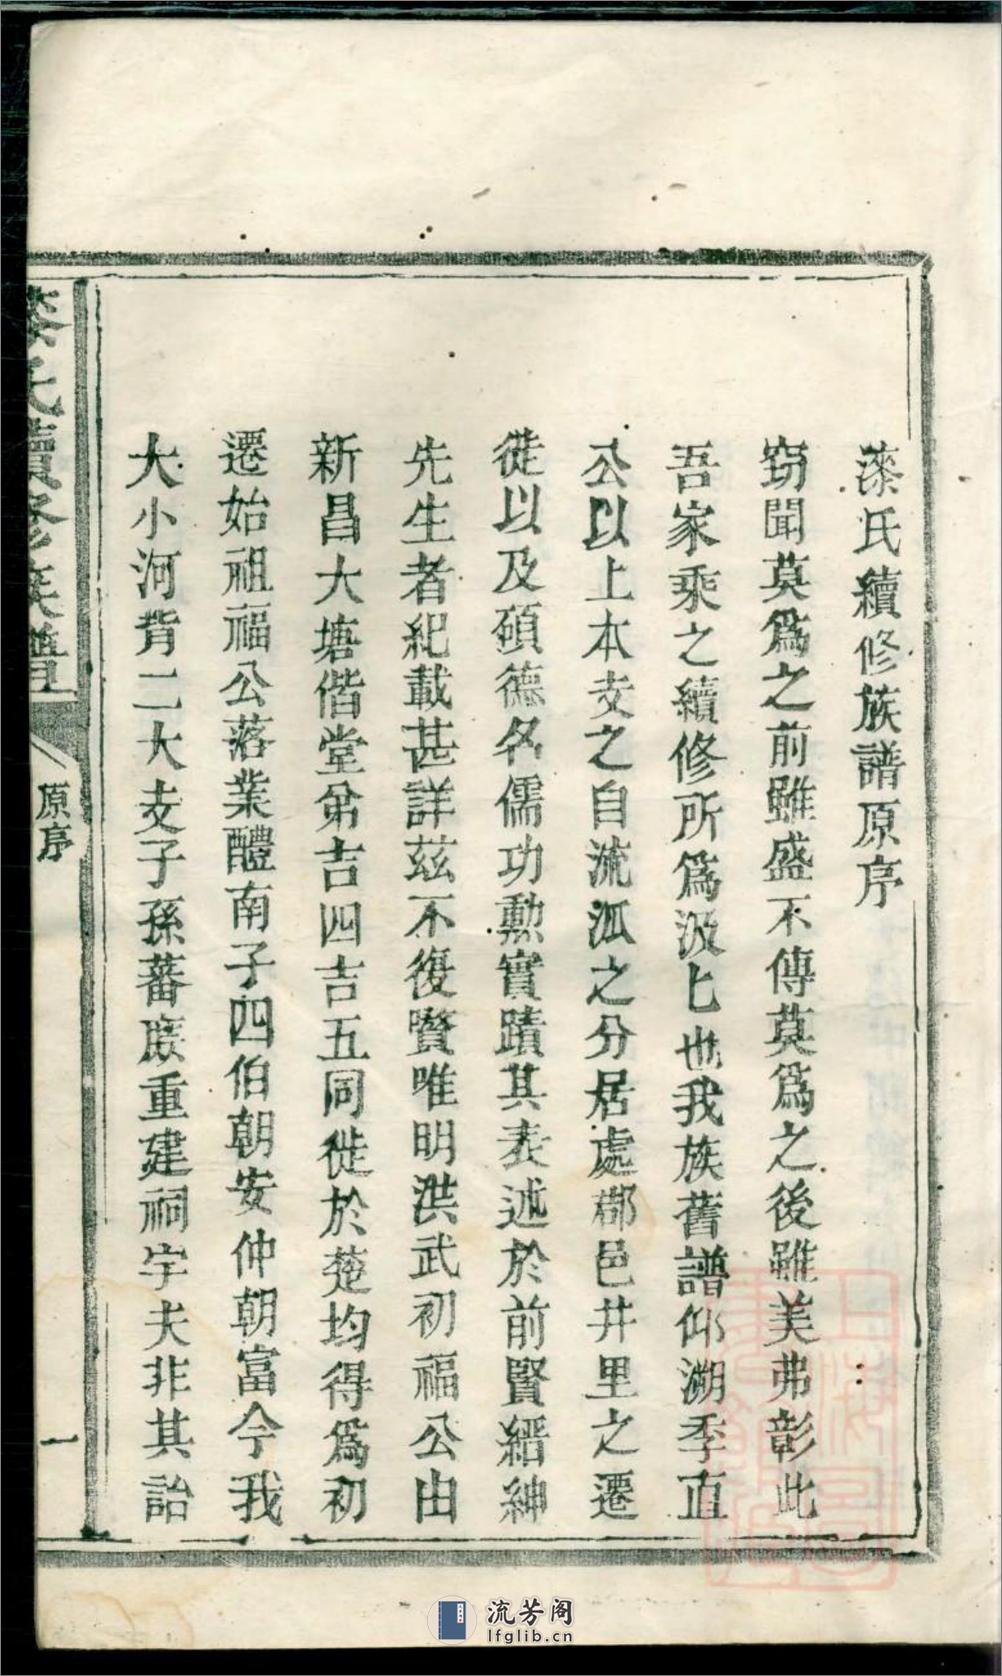 漆氏續修族譜原序
窃聞莫爲之前雖盛不傳莫爲之後雖美弗彰此
吾家乘之續修所爲汲匕也我族舊譜仰溯季直
公以上本支之自流派之分居處鄉邑井里之遷
徙以及碩德名儒功勳實蹟其表述於前賢縉紳
先生者紀載甚詳茲不復贅唯明洪武初福公由
新昌大塘偕堂弟吉四吉五同徙於楚均得爲初
遷始祖福公落業醴南子四伯朝安仲朝富今我
大小河背二大支子孫蕃庶重建祠宇夫非其詒
漆氏續修族譜
原序
一
流芳阁
lfglib.cn